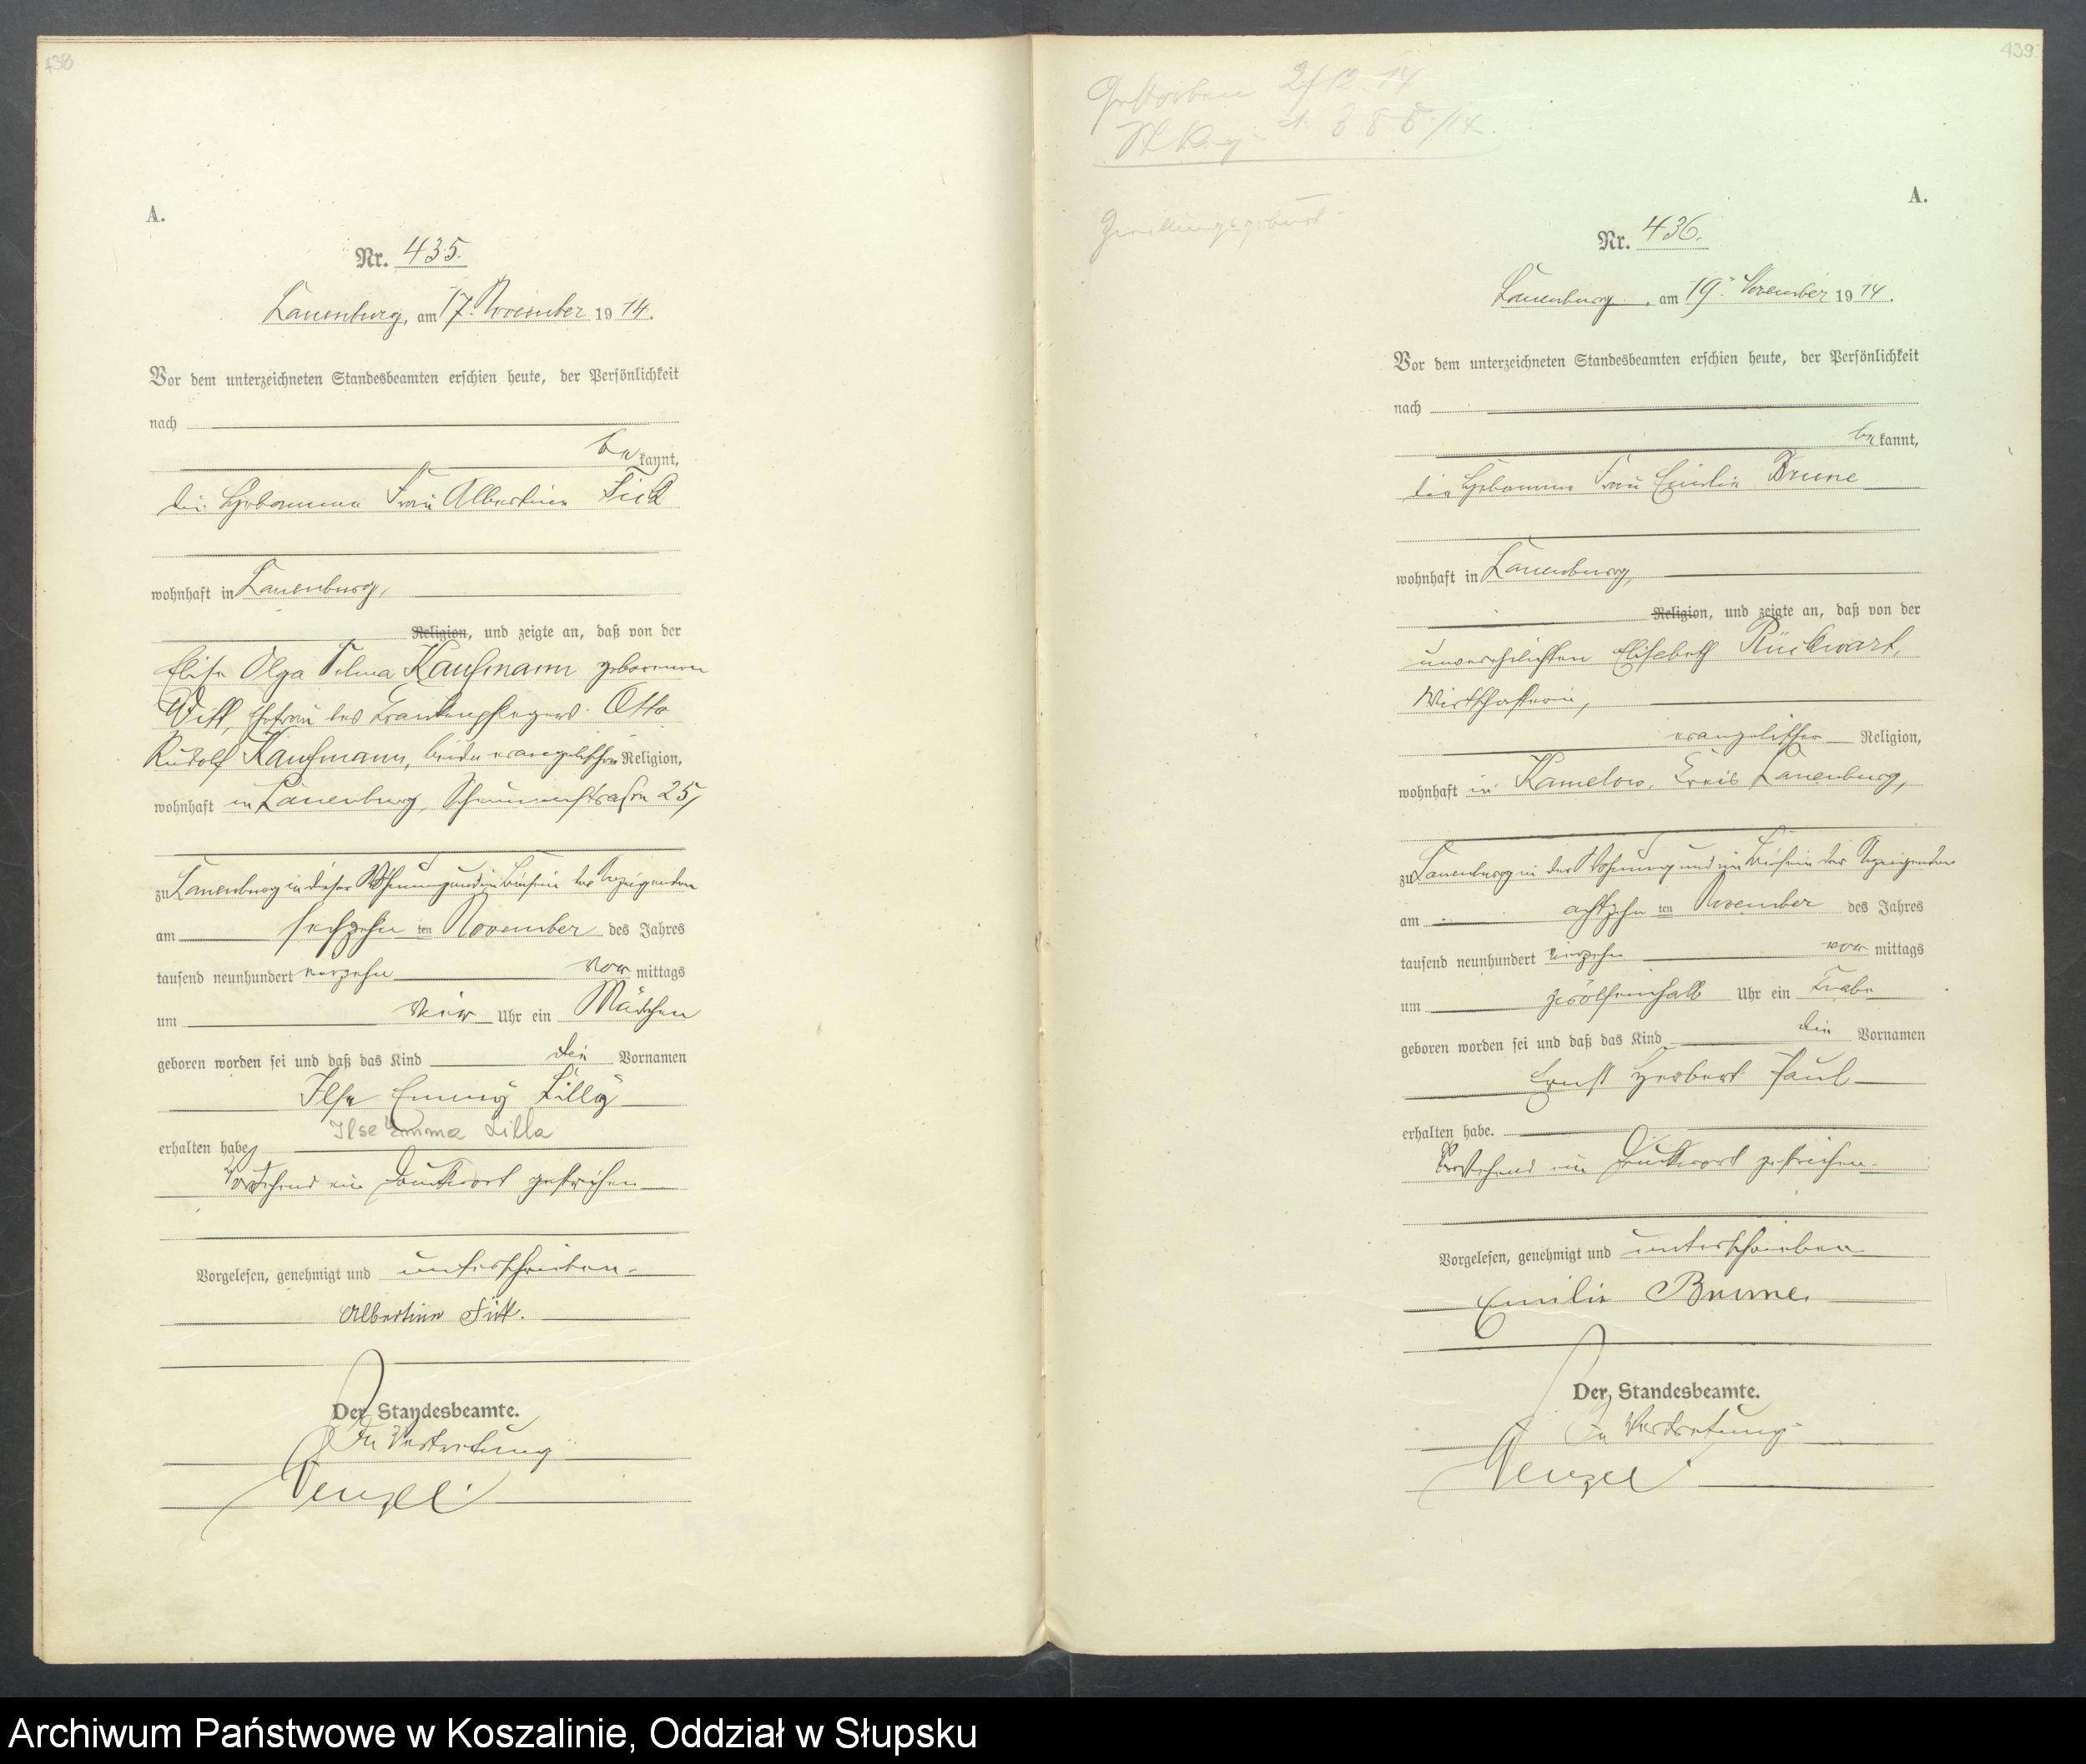 438
A.
Nr. 435.
Lauenburg, am 17. November 1914.
Vor dem unterzeichneten Standesbeamten erschien heute, der Persönlichkeit
nach
bekannt,
die Hebamme Frau Albertine Fick
wohnhaft in Lauenburg,
Religion, und zeigte an, daß von der
Elise Olga Selma Kaufmann geborenen
Witt, Ehefrau des Krankenpflegers Otto
Rudolf Kaufmann, beide evangelischer Religion,
wohnhaft in Lauenburg, Scheunenstraße 25,
zu Lauenburg in dieser Wohnung und im Beisein der Anzeigenden
am sechzehnten November des Jahres
tausend neunhundert vierzehn vormittags
um vier Uhr ein Mädchen
geboren worden sei und daß das Kind die Vornamen
Ilse Emmy Lilly
Ilse Emma Lilla
erhalten habe,
Vorstehend ein Druckwort gestrichen
Vorgelesen, genehmigt und unterschrieben.
Albertine Fick.
Der Standesbeamte.
In Vertretung
Wenzel
439
Gestorben 2/12.14
St. Reg. N 385/14.
Zwillingsgeburt
A.
Nr. 436.
Lauenburg, am 19. November 1914.
Vor dem unterzeichneten Standesbeamten erschien heute, der Persönlichkeit
nach
bekannt,
die Hebamme Frau Emilie Brune
wohnhaft in Lauenburg,
Religion, und zeigte an, daß von der
unverehelichten Elisabeth Rückwart,
Wirtschafterin,
evangelischer Religion,
wohnhaft in Kamelow, Kreis Lauenburg,
zu Lauenburg in der Wohnung und im Beisein der Anzeigenden
am achtzehnten November des Jahres
tausend neunhundert vierzehn vormittags
um zwölfeinhalb Uhr ein Knabe
geboren worden sei und daß das Kind die Vornamen
Ernst Herbert Paul
erhalten habe.
Vorstehend ein Druckwort gestrichen.
Vorgelesen, genehmigt und unterschrieben
Emilie Brune.
Der Standesbeamte.
In Vertretung
Wenzel
Archiwum Państwowe w Koszalinie, Oddział w Słupsku